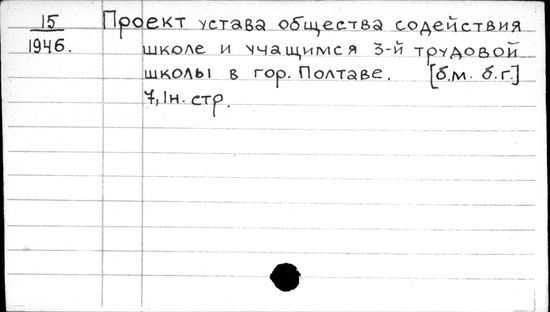 15 Проект устава общества содействия
1946. школе и учащимся 3-й трудовой
школы в гор. Полтаве. [б.м. б.г.]
7,1н. стр.